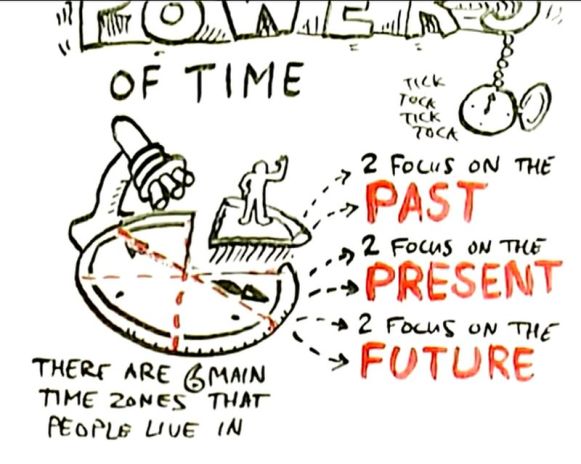 POWERS
OF TIME
TICK
TOCK
TICK
TOCK
2 FOCUS ON THE
PAST
2 FOCUS ON THE
PRESENT
2 FOCUS ON THE
FUTURE
THERE ARE 6 MAIN
TIME ZONES THAT
PEOPLE LIVE IN